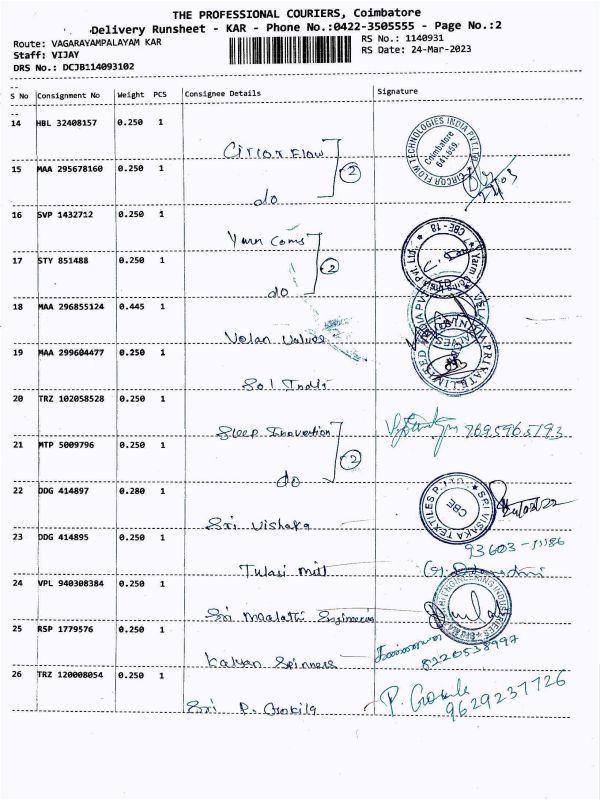 THE PROFESSIONAL COURIERS, Coimbatore
Delivery Runsheet - KAR - Phone No.:0422-3505555 - Page No.:2
Route: VAGARAYAMPALAYAM KAR
RS No.: 1140931
Staff: VIJAY
RS Date: 24-Mar-2023
DRS No.: DCJB114093102
S No Consignment No Weight PCS Consignee Details Signature
14 HBL 32408157 0.250 1
Circor Flow
CIRCOR FLOW TECHNOLOGIES INDIA PVT.LTD
Coimbatore
641 659.
15 MAA 295678160 0.250 1
do
2
16 SVP 1432712 0.250 1
Yarn Coms
CBE-18
17 STY 851488 0.250 1
do
2
18 MAA 296855124 0.445 1
Velan Valves
19 MAA 299604477 0.250 1
Sol India
PRIVATE LIMITED
20 TRZ 102058528 0.250 1
Sleep Inovation
7695965193
21 MTP 5009796 0.250 1
do
2
22 DDG 414897 0.280 1
Sri Vishaka
SRI VISAKA TEXTILES P. LTD.
CBE
23 DDG 414895 0.250 1
Tulasi mill
93603-11186
24 VPL 940308384 0.250 1
Sri Maalathi Engineering
25 RSP 1779576 0.250 1
Kalyan Spinners
8220538997
26 TRZ 120008054 0.250 1
Sri P. Gokila
P. Gokila
9629237726